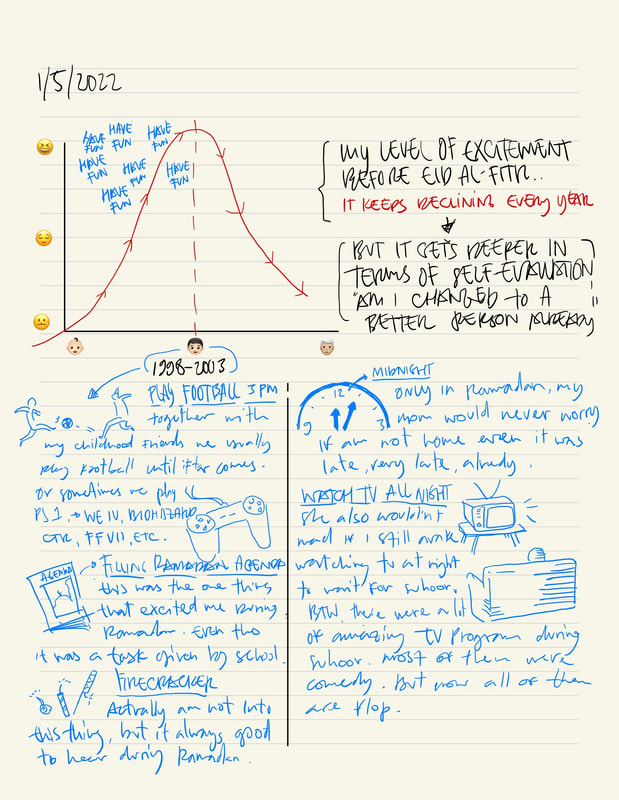 1/5/2022
HAVE FUN
HAVE FUN
HAVE FUN
HAVE FUN
HAVE FUN
HAVE FUN
HAVE FUN
MY LEVEL OF EXCITEMENT
BEFORE EID AL-FITR..
IT KEEPS DECLINING EVERY YEAR
BUT IT GETS DEEPER IN
TERMS OF SELF-EVALUATION
"AM I CHANGED TO A
BETTER PERSON ALREADY"
1998-2003
PLAY FOOTBALL 3 PM
together with
my childhood friends we usually
play football until iftar comes.
or sometimes we play
PS1, → WE IV, BIOHAZARD
CTR, FFVII, ETC.
AGENDA
FILLING RAMADAN AGENDA
this was the one thing
that excited me during
Ramadan. Even tho
it was a task given by school.
FIRECRACKER
Actually am not into
this thing, but it always good
to hear during Ramadan.
MIDNIGHT
12
9
3
only in Ramadan, my
mom would never worry
if am not home even it was
late, very late, already.
WATCH TV ALL NIGHT
she also wouldn't
mad if I still awake
watching tv at night
to wait for suhoor.
BTW, there were a lot
of amazing TV Program during
suhoor. most of them were
comedy. But now all of them
are flop.